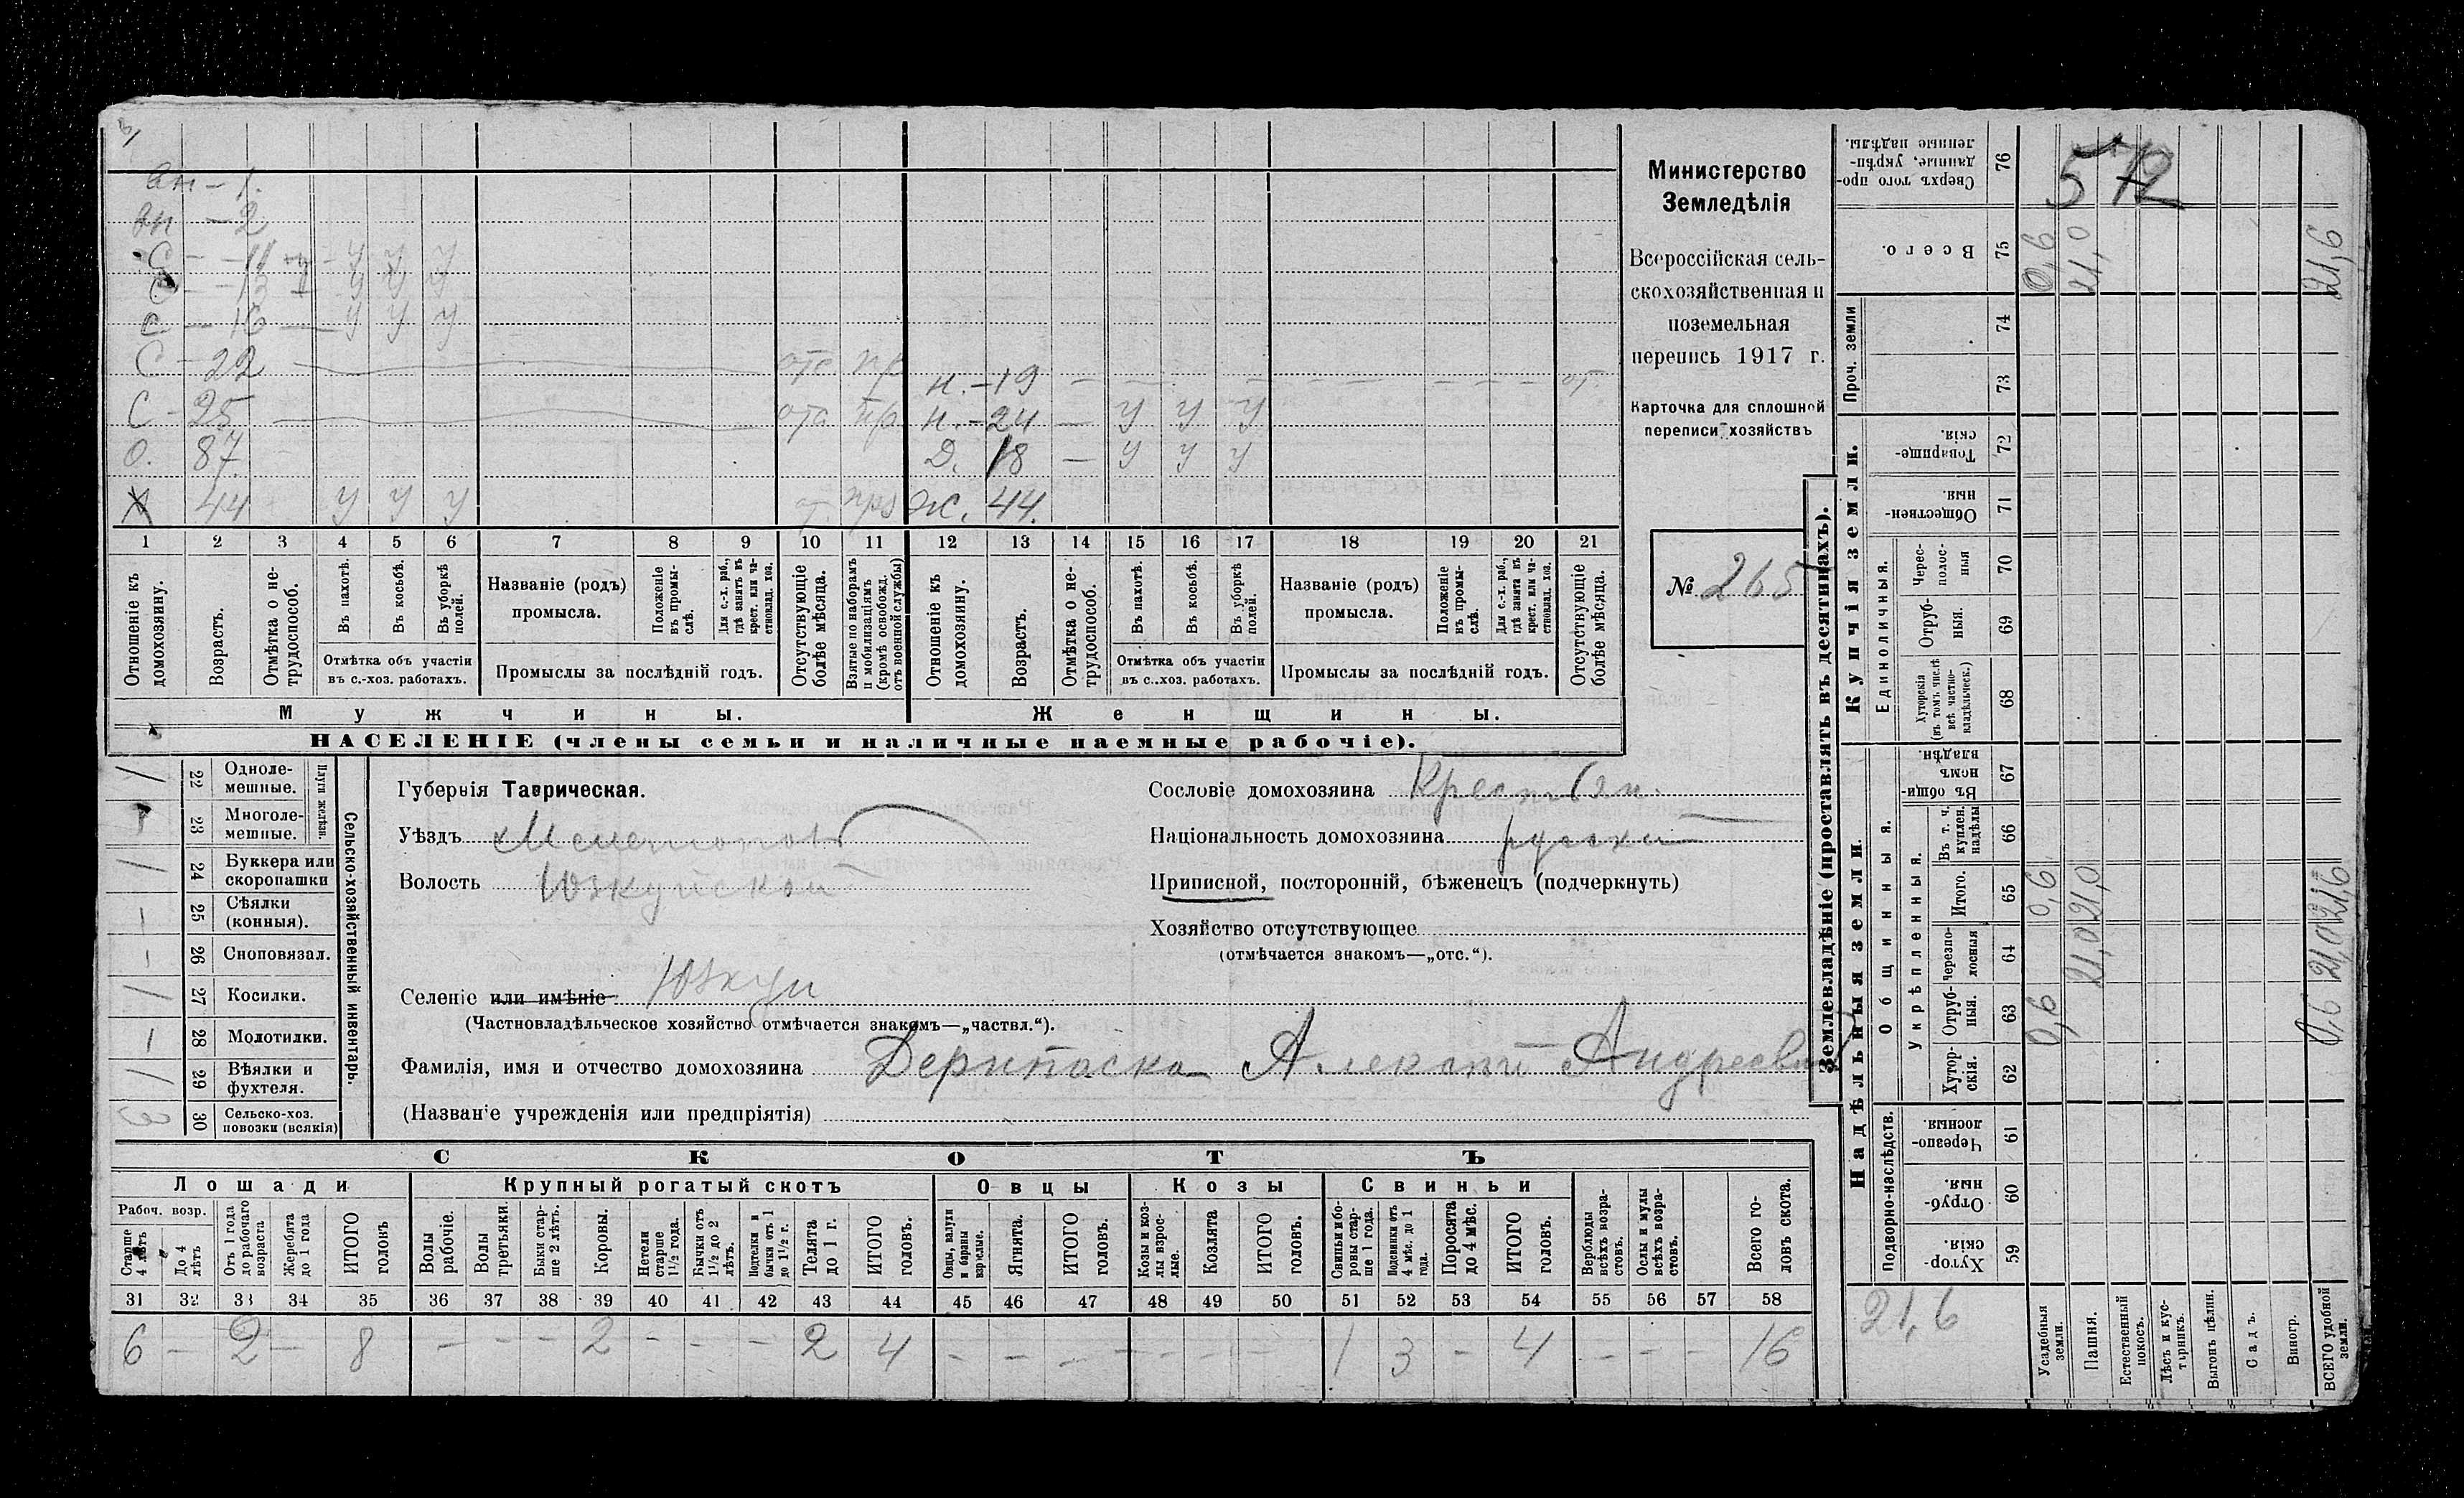 вн – 1.
вн – 2
С – 11 – у у у
С – 13 – у у у
С – 16 – у у у
С – 22 — отс пр н. – 19 — — — — — — — от.
С – 25 — отс пр н. – 24 — у у у
О. 87. Д. 18 — у у у
Х 44 у у у ж. 44.
1 2 3 4 5 6 7 8 9 10 11 12 13 14 15 16 17 18 19 20 21
Отношеніе къ домохозяину.
Возрастъ.
Отмѣтка о не-трудоспособ.
Въ пахотѣ.
Въ косьбѣ.
Въ уборкѣ полей.
Отмѣтка объ участіи въ с.-хоз. работахъ.
Названіе (родъ) промысла.
Положеніе въ промы-слѣ.
Для с.-х. раб., гдѣ занятъ въ крест. или ча-стновлад. хоз.
Промыслы за послѣдній годъ.
Отсутствующіе болѣе мѣсяца.
Взятые по наборамъ и мобилизаціямъ (кромѣ освобожд. отъ военной службы)
Отношеніе къ домохозяину.
Возрастъ.
Отмѣтка о не-трудоспособ.
Въ пахотѣ.
Въ косьбѣ.
Въ уборкѣ полей.
Отмѣтка объ участіи въ с.-хоз. работахъ.
Названіе (родъ) промысла.
Положеніе въ промы-слѣ.
Для с.-х. раб., гдѣ занята въ крест. или ча-стновлад. хоз.
Промыслы за послѣдній годъ.
Отсутствующіе болѣе мѣсяца.
Мужчины.
Женщины.
НАСЕЛЕНІЕ (члены семьи и наличные наемные рабочіе).
Министерство
Земледѣлія
Всероссійская сель-
скохозяйственная и
поземельная
перепись 1917 г.
Карточка для сплошной
переписи хозяйствъ
№ 265
Сельско-хозяйственный инвентарь.
Плуги желѣзн.
/ 22 Одноле-мешные.
23 Многоле-мешные.
/ 24 Буккера или скоропашки
– 25 Сѣялки (конныя).
– 26 Сноповязал.
/ 27 Косилки.
– 28 Молотилки.
/ 29 Вѣялки и фухтеля.
3 30 Сельско-хоз. повозки (всякія)
Губернія Таврическая.
Уѣздъ Мелитопол
Волость Юзкуйской
Селеніе или имѣніе Юзкуи
(Частновладѣльческое хозяйство отмѣчается знакомъ—„частвл.“).
Сословіе домохозяина Крестьян.
Національность домохозяина русский
Приписной, посторонній, бѣженецъ (подчеркнуть)
Хозяйство отсутствующее
(отмѣчается знакомъ—„отс.“).
Фамилія, имя и отчество домохозяина Дерипаска Алексѣй Андреевич
(Названіе учрежденія или предпріятія)
СКОТЪ
Лошади
Крупный рогатый скотъ
Овцы
Козы
Свиньи
Рабоч. возр.
Старше 4 лѣтъ
До 4 лѣтъ
Отъ 1 года до рабочаго возраста
Жеребята до 1 года
ИТОГО головъ
Волы рабочіе.
Волы третьяки.
Быки стар-ше 2 лѣтъ.
Коровы.
Нетели старше 1½ года.
Бычки отъ 1½ до 2 лѣтъ.
Подтелки и бычки отъ 1 до 1½ г.
Телята до 1 г.
ИТОГО головъ.
Овцы, валухи и бараны взрослые.
Ягнята.
ИТОГО головъ.
Козы и коз-лы взрос-лые.
Козлята
ИТОГО головъ.
Свиньи и бо-ровы стар-ше 1 года.
Подсвинки отъ 4 мѣс. до 1 года.
Поросята до 4 мѣс.
ИТОГО головъ.
Верблюды всѣхъ возра-стовъ.
Ослы и мулы всѣхъ возра-стовъ.
Всего го-ловъ скота.
31 32 33 34 35 36 37 38 39 40 41 42 43 44 45 46 47 48 49 50 51 52 53 54 55 56 57 58
6 – 2 – 8 – – – 2 – – – 2 4 – – – – – – 1 3 – 4 – – – 16
Землевладѣніе (проставлять въ десятинахъ).
572
Сверхъ того про-данные, укрѣп-ленные надѣлы. 76
Всего. 75 0,6 21,0 21,6
Проч. земли 74
73
Купчія земли.
Товарище-скія. 72
Обществен-ныя. 71
Единоличныя.
Черес-полос-ныя 70
Отруб-ныя. 69
Хуторскія (въ томъ числѣ всѣ частно-владѣльческ.) 68
Надѣльныя земли.
Общинныя.
Въ общи-номъ владѣн. 67
Укрѣпленныя.
Въ т. ч. куплен. надѣлы 66
Итого. 65 0,6 21,0 21,6
Черезпо-лосныя 64 21,0 21,0
Отруб-ныя. 63 0,6 0,6
Хутор-скія. 62
Подворно-наслѣдств.
Черезпо-лосныя. 61
Отруб-ныя. 60
Хутор-скія. 59
21,6
Усадебныя земли.
Пашня.
Естественный покосъ.
Лѣсъ и кус-тарникъ.
Выгонъ цѣлин.
Садъ.
Виногр.
ВСЕГО удобной земли.